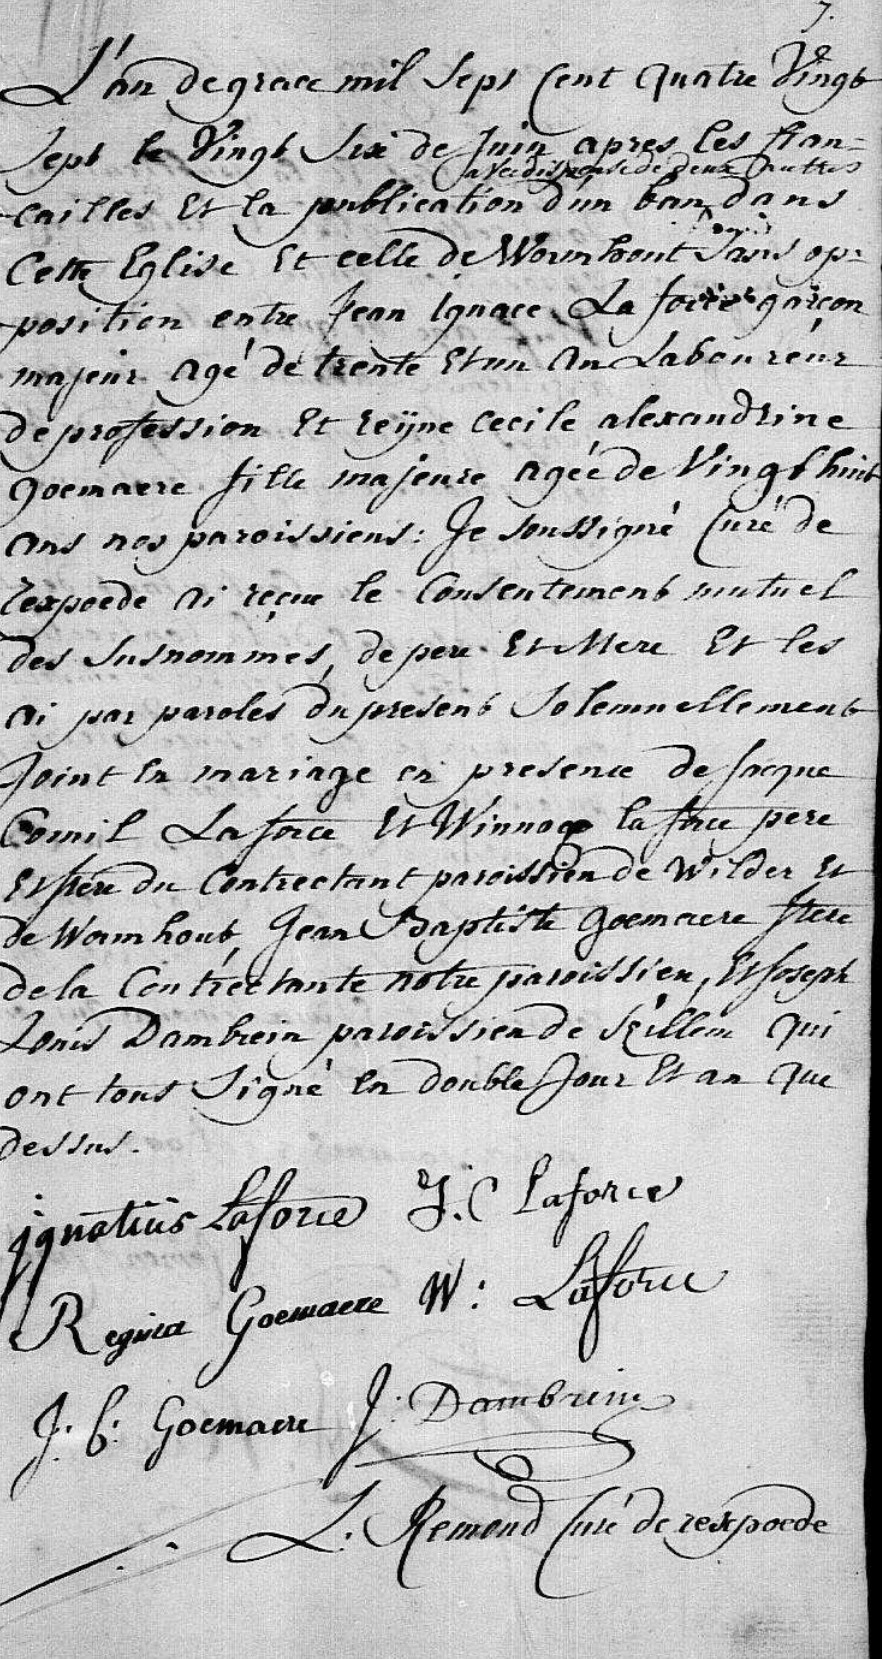 7.
L'an de grace mil sept cent quatre vingt
sept le vingt six de Juin apres les fian=
avec dispense de deux autres
cailles et la publication d'un ban dans
Cette Eglise et celle de Wormhout sans op=
position entre Jean ignace La force garçon
majeur agé de trente et un an Laboureur
de profession et reijne cecile alexandrine
goemaere fille majeure agée de vingt huit
ans nos paroissiens: Je soussigné Curé de
rexpoede ai reçue le Consentement mutuel
des susnommés, de pere et Mere et les
ai par paroles du present solemnellement
Joint en mariage en presence de Jacque
Cornil Laforce et Winnoc laforce pere
et frere du Contrectant paroissien de Wilder et
de Wormhout, Jean Baptiste goemaere frere
de la Contrectante notre paroissien, et Joseph
Louis Dambrein paroissien de Killem qui
ont tous signé en double Jour et an que
dessus.
ignatius Laforce J. C Laforce
Regina Goemaere W: Laforce
J: b: Goemaere J: Dambrein
L. Remond Curé de rexpoede